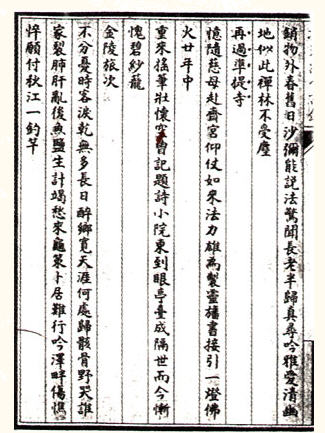 鎖物外春舊日沙彌能說法驚聞長老半歸真尋今雅愛清幽
地似此禪林不受塵
再過準提寺
憶隨慈母赴齋宮仰仗如來法力雄為製靈旛書接引一燈佛
火廿年中
重來搖筆壯懷空曾記題詩小院東到眼亭臺成隔世而今慚
愧碧紗籠
金陵旅次
不分憂時客淚乾無多長日醉鄉寬天涯何處歸骸骨野哭誰
家裂肺肝亂後魚鹽生計竭愁來龜策卜居難行吟澤畔傷憔
悴願付秋江一釣竿